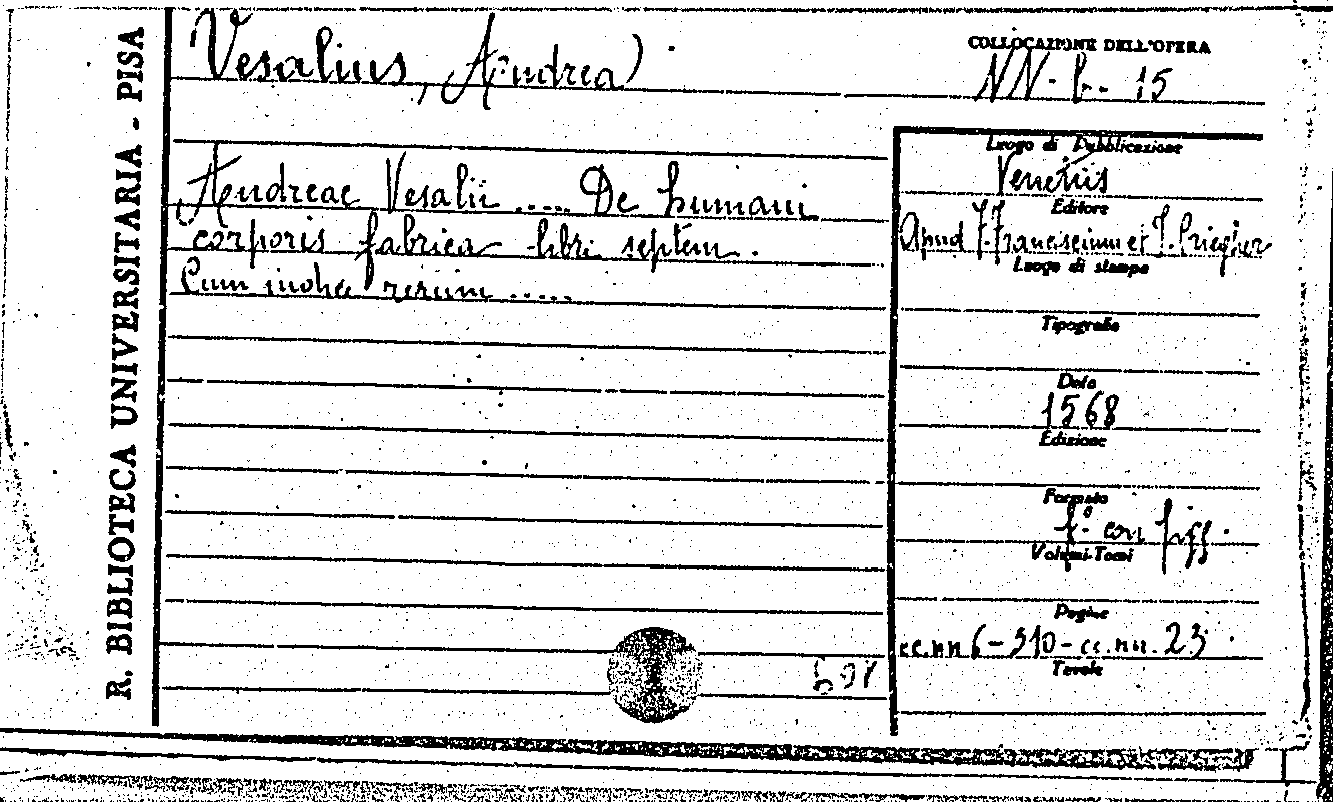 R. BIBLIOTECA UNIVERSITARIA - PISA
Vesalius, Andrea)
COLLOCAZIONE DELL'OPERA
NN. b. 15
Andreae Vesalii ..... De humani
corporis fabrica libri septem.
Cum rerum .....
Luogo di Pubblicazione
Venetiis
Editore
Apud F. Franciscium et J. Criegher
Luogo di stampa
Tipografia
Data
1568
Edizione
Formato
f.° con figg.
Volumi-Tomi
Pagine
cc.nn 6 - 510 - cc.nn. 23
Tavole